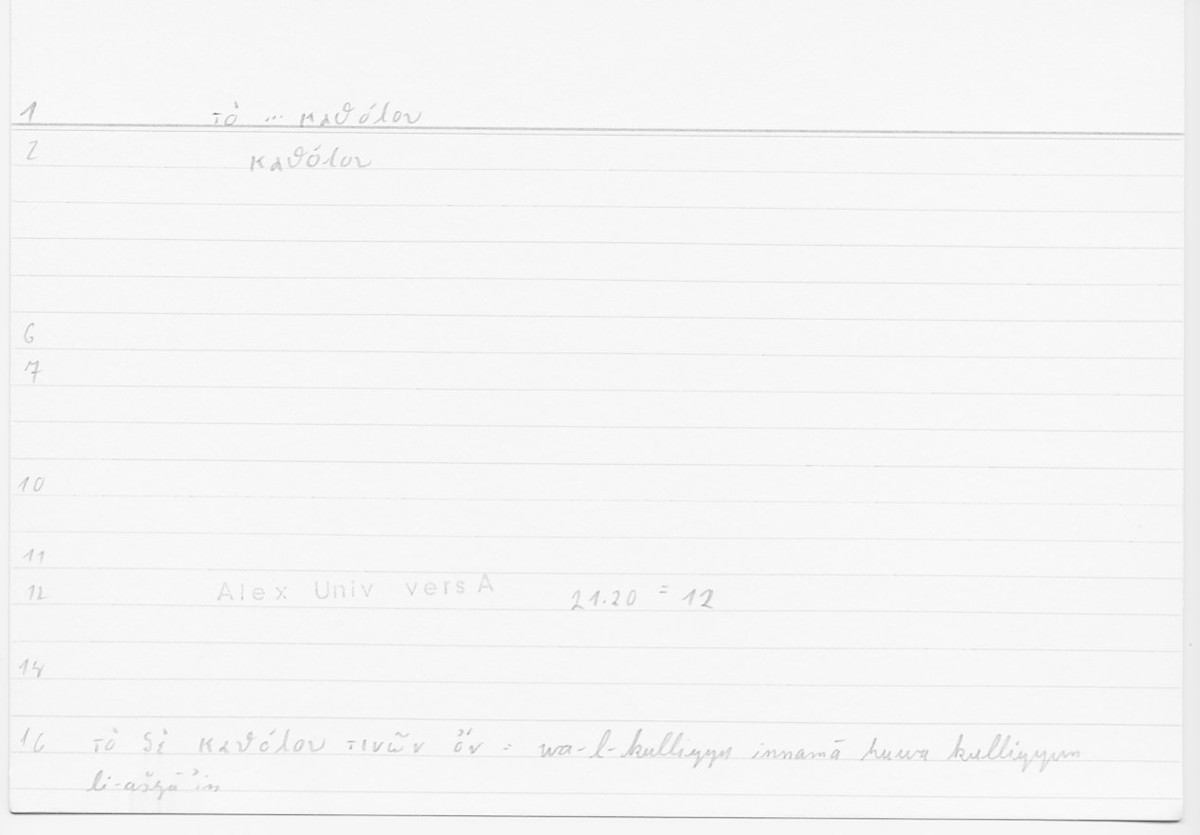 1 τὸ ... καθόλου
2 καθόλου
6
7
10
11
12 Alex Univ vers A 21.20 = 12
14
16 τὸ δὲ καθόλου τινῶν ὄν = wa-l-kulliyyu innamā huwa kulliyyun
li-ašyāʾin